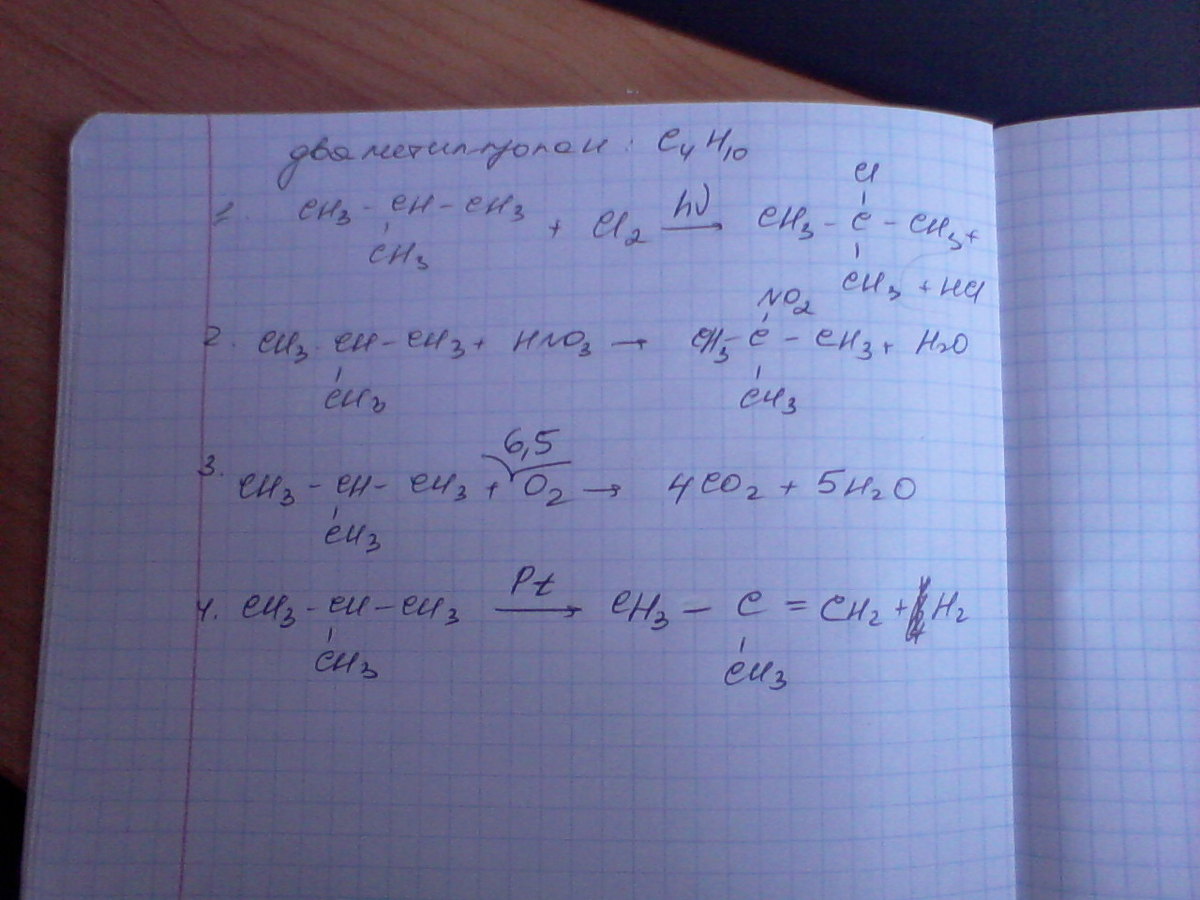 дваметилпропан: C4H10
1. CH3 - CH - CH3 + Cl2 hν → CH3 - C - CH3 +
Cl
CH3
CH3 + HCl
2. CH3 CH - CH3 + HNO3 → CH3 - C - CH3 + H2O
NO2
CH3
CH3
3. CH3 - CH - CH3 + 6,5 O2 → 4CO2 + 5H2O
CH3
4. CH3 - CH - CH3 Pt → CH3 - C = CH2 + H2
CH3
CH3